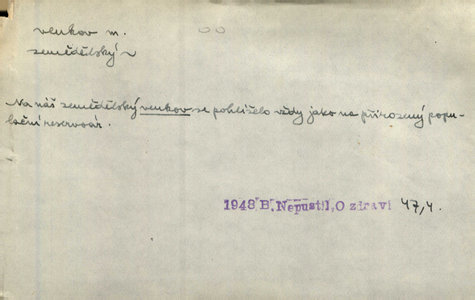 venkov m.
zemědělský ~
Na náš zemědělský venkov se pohlíželo vždy jako na přirozený popu-
lační reservoár.
1948 B. Nepustil, O zdraví 47,4.